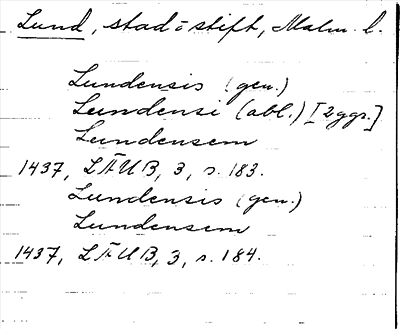 Lund, stad o stift, Malm. l.
Lundensis (gen.)
Lundensi (abl.) [2 ggr.]
Lundensem
1437, LÄUB, 3, s. 183.
Lundensis (gen.)
Lundensem
1437, LÄUB, 3, s. 184.